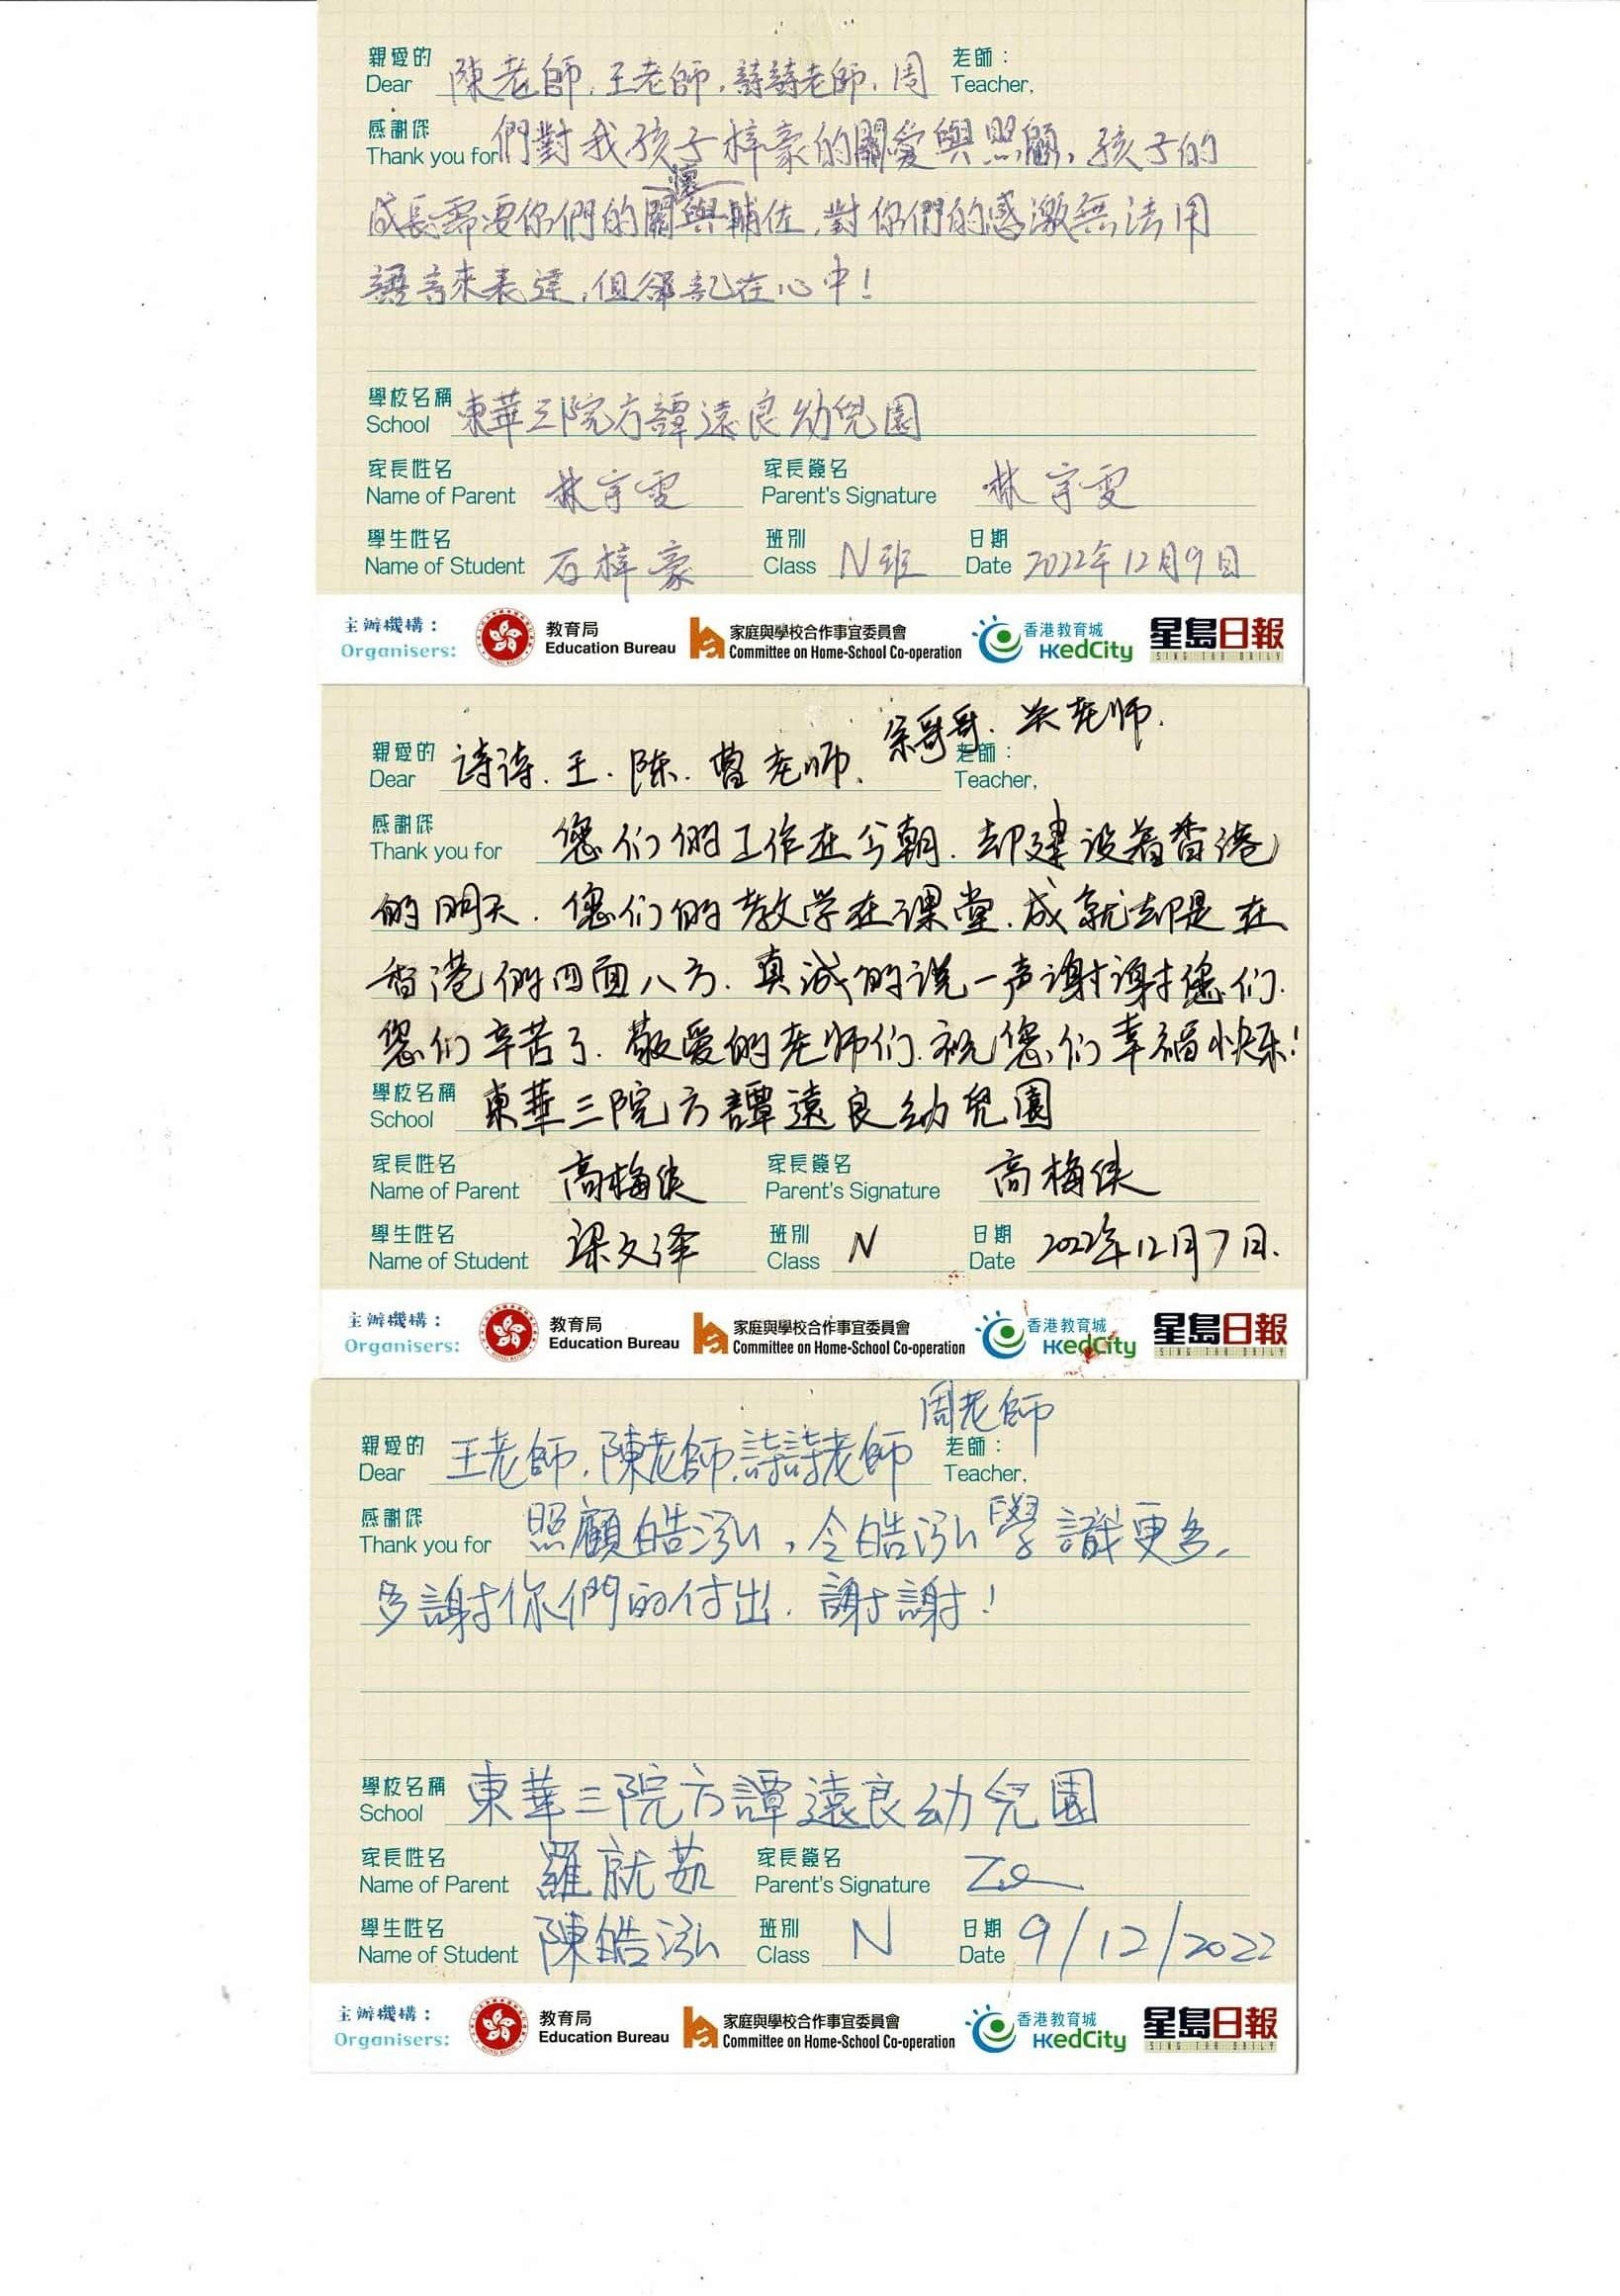 親愛的 陳老師,王老師,詩詩老師,周 老師：
Dear Teacher,
感謝你 們對我孩子梓豪的關愛與照顧,孩子的
Thank you for
懷
成長需要你們的關與輔佐,對你們的感激無法用
語言來表達,但卻記在心中!
學校名稱 東華三院方譚遠良幼兒園
School
家長姓名 林宇雯 家長簽名 林宇雯
Name of Parent Parent's Signature
學生姓名 石梓豪 班別 N班 日期 2022年12月9日
Name of Student Class Date
主辦機構： 教育局 家庭與學校合作事宜委員會 香港教育城 星島日報
Organisers: Education Bureau Committee on Home-School Co-operation HKedCity SING TAO DAILY
宗哥哥. 关老师.
親愛的 诗诗.王.陈.曹老师. 老師：
Dear Teacher,
感謝你 您们的工作在今朝.却建设着香港
Thank you for
的明天.您们的教学在课堂.成就却是在
香港的四面八方.真诚的说一声谢谢您们.
您们辛苦了.敬爱的老师们.祝您们幸福快乐!
學校名稱 東華三院方譚遠良幼兒園
School
家長姓名 高梅侠 家長簽名 高梅侠
Name of Parent Parent's Signature
學生姓名 梁文泽 班別 N 日期 2022年12月7日.
Name of Student Class Date
主辦機構： 教育局 家庭與學校合作事宜委員會 香港教育城 星島日報
Organisers: Education Bureau Committee on Home-School Co-operation HKedCity SING TAO DAILY
周老師
親愛的 王老師,陳老師,詩詩老師 老師：
Dear Teacher,
感謝你 照顧皓泓,令皓泓學識更多,
Thank you for
多謝你們的付出.謝謝!
學校名稱 東華三院方譚遠良幼兒園
School
家長姓名 羅就茹 家長簽名
Name of Parent Parent's Signature
學生姓名 陳皓泓 班別 N 日期 9/12/2022
Name of Student Class Date
主辦機構： 教育局 家庭與學校合作事宜委員會 香港教育城 星島日報
Organisers: Education Bureau Committee on Home-School Co-operation HKedCity SING TAO DAILY